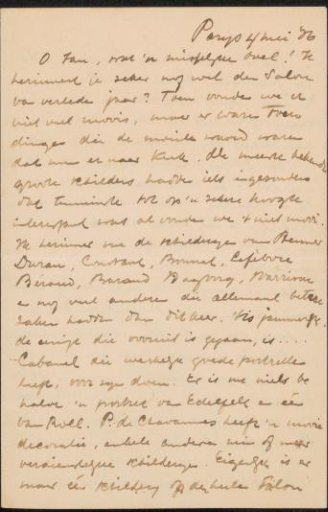 Parijs 4 mei '86
O Jan, wat 'n misselijke boel! Je
herinnert je zeker nog wel den Salon
van verleden jaar? Toen vonden we er
niet veel moois, maar er waren toen
dingen die de moeite waard waren
dat men er naar keek. De meeste bekende
groote schilders hadden iets ingezonden
dat tenminste tot op 'n zekere hoogte
interessant was al vonden we 't niet mooi.
Ik herinner me de schilderijen van Henner
Duran, Constant, Bonnat, Lefebvre
Béraud,
e nog veel andere die allemaal betere
zaken hadden dan dit keer. 't Is jammerlijk.
de eenige die vooruit is gegaan, is ....
Cabanel die werkelijk goede portretten
heeft, voor zijn doen. Er is me niets be
halve 'n portret van Edelfelt e één
van Roll. P. de Chavannes heeft 'n mooie
decoratie, enkele andere min of meer
verdienstelijke schilderijen. Eigenlijk is er
maar één schilderij op de heele Salon